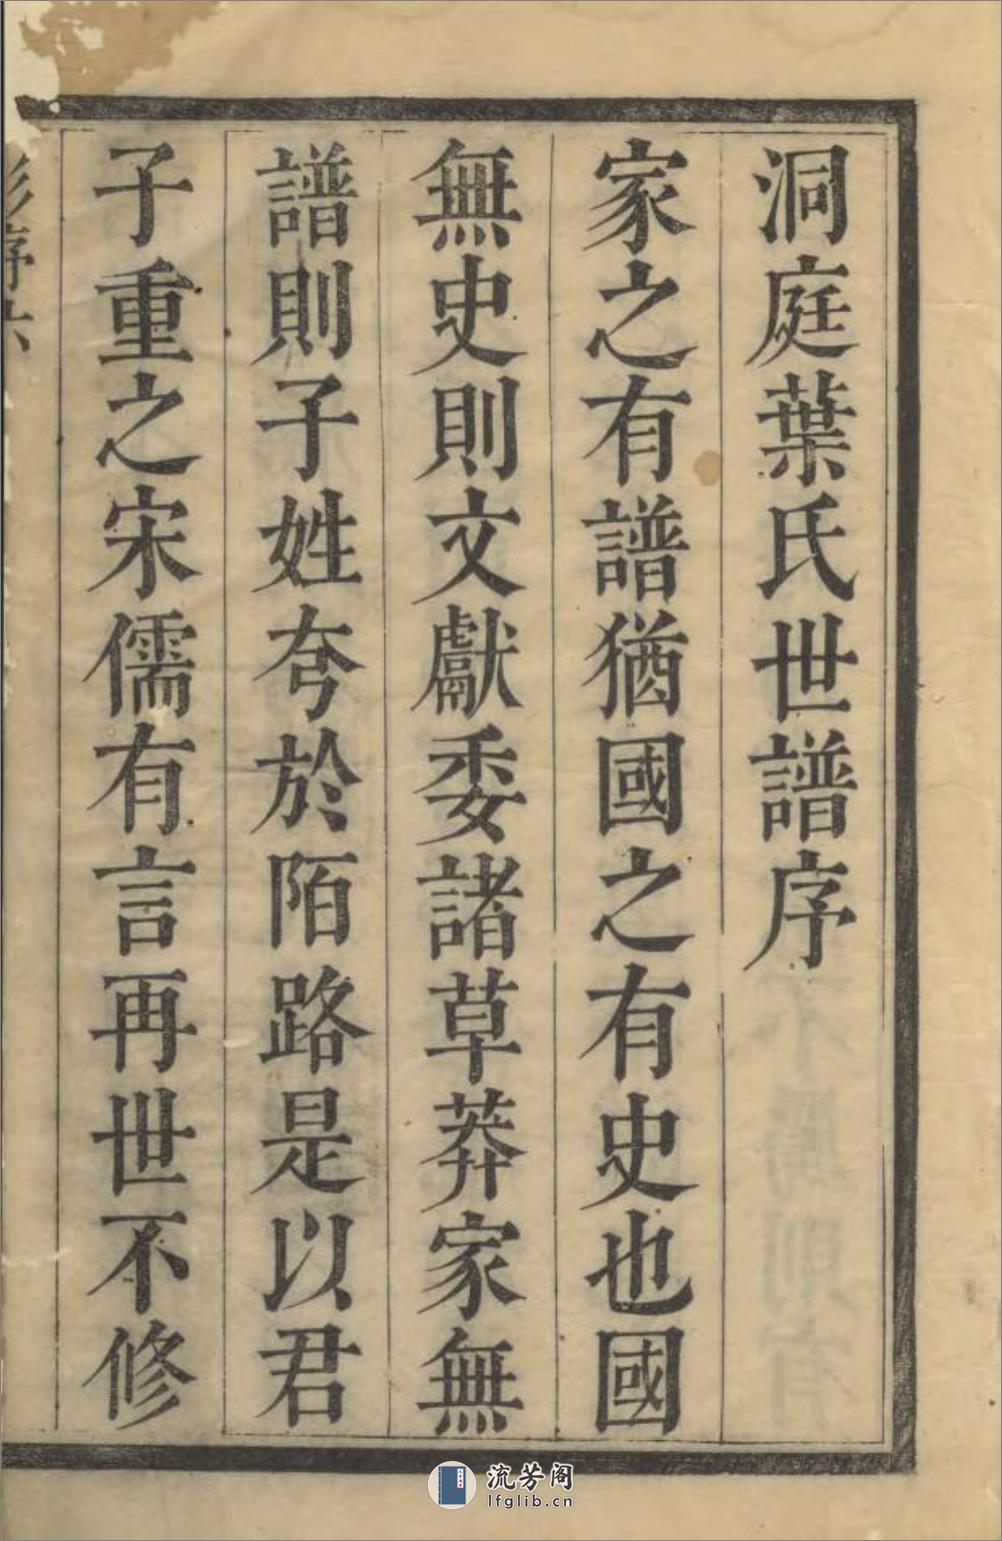 洞庭葉氏世譜序
家之有譜猶國之有史也國
無史則文獻委諸草莽家無
譜則子姓夸於陌路是以君
子重之宋儒有言再世不修
彭序六
流芳阁
lfglib.cn